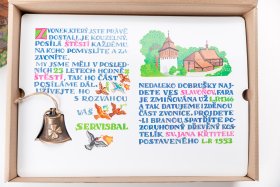 ZVONEK, KTERÝ JSTE PRÁVĚ
DOSTALI, JE KOUZELNÝ.
POSÍLÁ ŠTĚSTÍ KAŽDÉMU,
NA KOHO POMYSLÍTE A ZA-
ZVONÍTE.
MY JSME MĚLI V POSLED-
NÍCH 25 LETECH HODNĚ
ŠTĚSTÍ, TAK HO ČÁST
POSÍLÁME DÁL.
UŽÍVEJTE HO
S ROZVAHOU
VÁŠ
SERVISBAL
NEDALEKO DOBRUŠKY NAJ-
DETE VES SLAVOŇOV. FARA
JE ZMIŇOVÁNA UŽ L.P. 1366
A TAK DATUJEME I ZDEJNOU
ČÁST ZVONICE. PROJDETE-
LI BRANOU, SPATŘÍTE PO-
ZORUHODNÝ DŘEVĚNÝ KOS-
TELÍK SV. JANA KŘTITELE
POSTAVENÉHO L.P. 1553